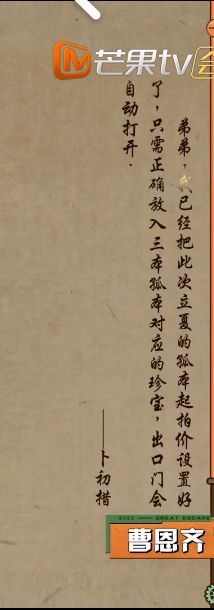 芒果tv
弟弟，我已经把此次立夏的孤本起拍价设置好
了，只需正确放入三本孤本对应的珍宝，出口门会
自动打开.
——卜初措
GREAT ESCAPE
曹恩齐